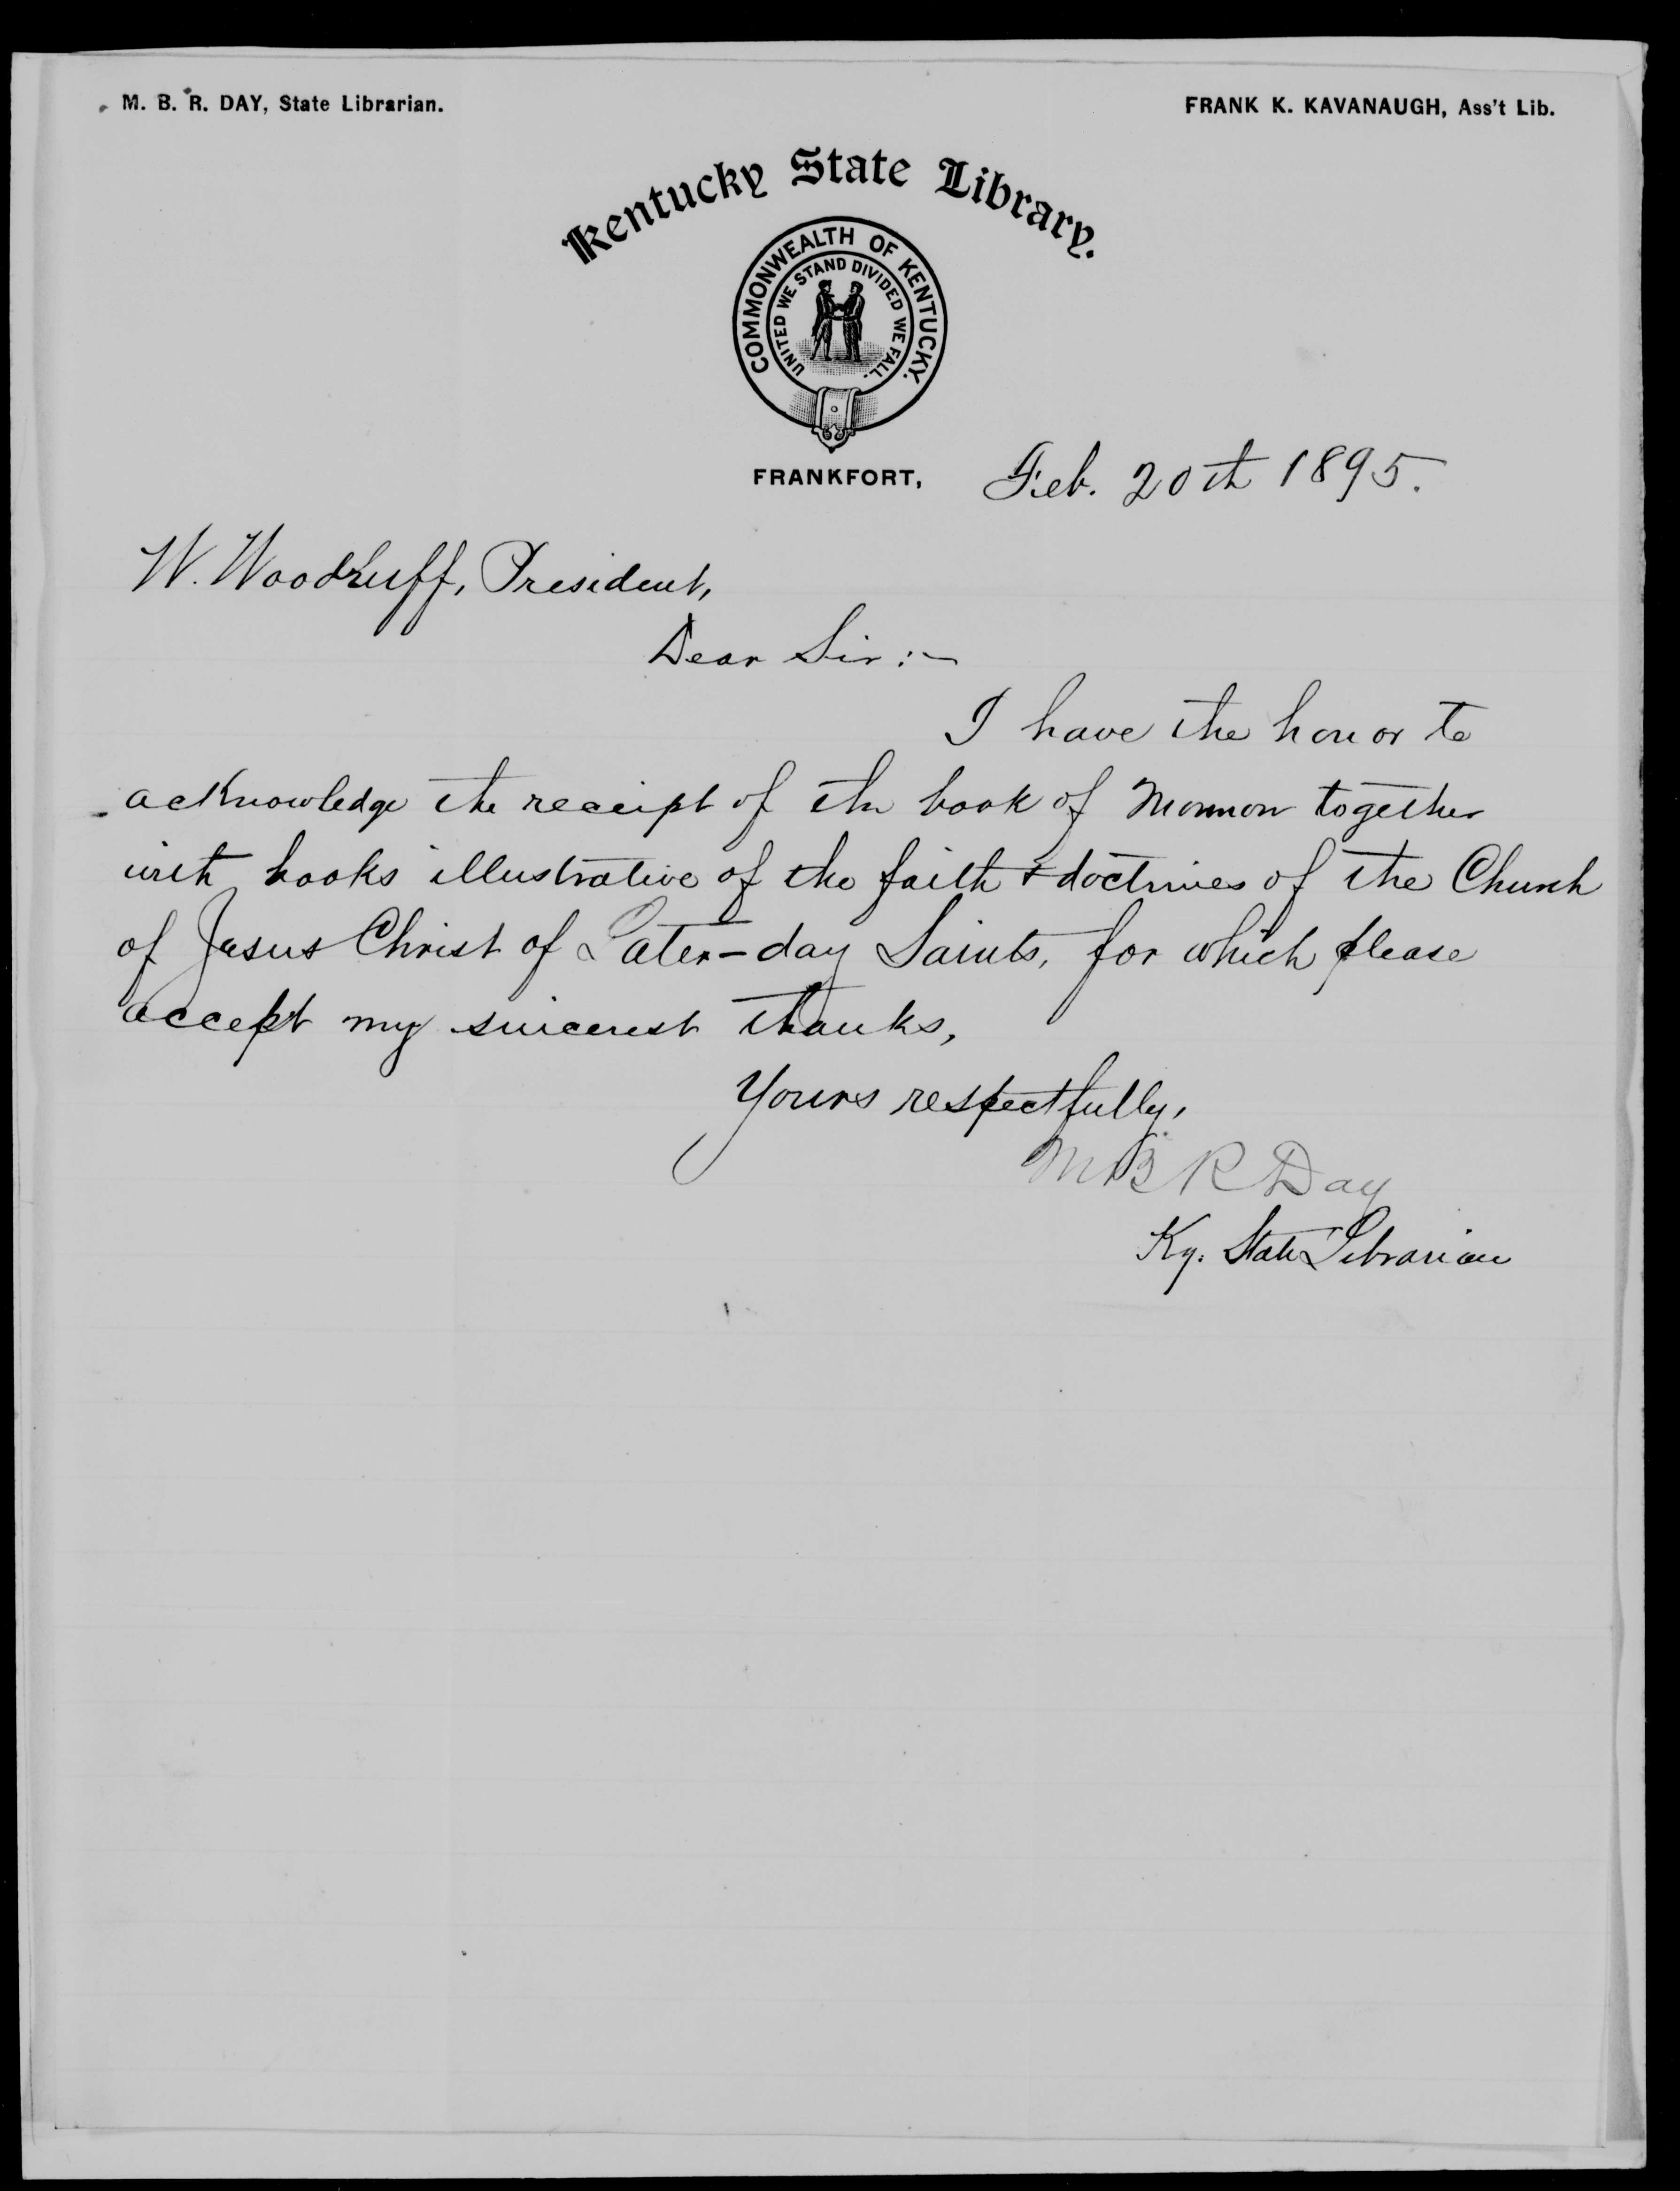 M. B. R. DAY, State Librarian.
FRANK K. KAVANAUGH, Ass't Lib.
Kentucky State Library.
COMMONWEALTH OF KENTUCKY.
UNITED WE STAND DIVIDED WE FALL.
FRANKFORT, Feb. 20th 1895.
W. Woodruff, President,
Dear Sir:-
I have the honor to
acknowledge the receipt of the book of Mormon together
with books illustrative of the faith & doctrines of the Church
of Jesus Christ of Later-day Saints, for which please
accept my sincerest thanks,
Yours respectfully,
M B R Day
Ky. State Librarian